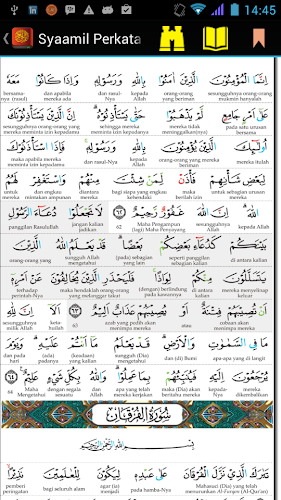 14:45
Syaamil Perkata
إِنَّمَا الْمُؤْمِنُوْنَ الَّذِيْنَ اٰمَنُوْا بِاللّٰهِ وَرَسُوْلِهٖ وَاِذَا كَانُوْا مَعَهٗ
bersama-nya (rasul) dan apabila mereka ada dan rasul-Nya kepada Allah yang beriman orang-orang
عَلٰٓى اَمْرٍ جَامِعٍ لَّمْ يَذْهَبُوْا حَتّٰى يَسْتَأْذِنُوْهُ ۗ اِنَّ الَّذِيْنَ يَسْتَأْذِنُوْنَكَ
sesungguhnya orang-orang yang mereka meminta izin kepadamu sehingga mereka meminta izin kepadanya mereka tidak meninggalkan(nya) pada satu urusan bersama
اُولٰۤىِٕكَ الَّذِيْنَ يُؤْمِنُوْنَ بِاللّٰهِ وَرَسُوْلِهٖ ۚ فَاِذَا اسْتَأْذَنُوْكَ
maka apabila mereka meminta izin kepadamu dan rasul-Nya kepada Allah orang-orang yang mereka beriman mereka itulah
لِبَعْضِ شَأْنِهِمْ فَأْذَنْ لِّمَنْ شِئْتَ مِنْهُمْ وَاسْتَغْفِرْ لَهُمُ
untuk mereka dan engkau mintakan ampunan diantara mereka bagi siapa yang engkau kehendaki maka berilah izin untuk sebagian urusan mereka
اللّٰهَ ۗ اِنَّ اللّٰهَ غَفُوْرٌ رَّحِيْمٌ ٦٢ لَا تَجْعَلُوْا دُعَاۤءَ الرَّسُوْلِ
panggilan Rasulullah jangan kalian jadikan 62 Maha Pengampun (lagi) Maha Penyayang sesungguhnya Allah kepada Allah
بَيْنَكُمْ كَدُعَاۤءِ بَعْضِكُمْ بَعْضًا ۗ قَدْ يَعْلَمُ اللّٰهُ الَّذِيْنَ
orang-orang yang sungguh Allah mengetahui (pada) sebagian yang lain seperti panggilan sebagian kalian di antara kalian
يَتَسَلَّلُوْنَ مِنْكُمْ لِوَاذًا ۚ فَلْيَحْذَرِ الَّذِيْنَ يُخَالِفُوْنَ عَنْ اَمْرِهٖٓ
terhadap perintah-Nya maka hendaklah orang-orang yang melanggar takut (dengan) berlindung (pada kawannya) di antara kalian
اَنْ تُصِيْبَهُمْ فِتْنَةٌ اَوْ يُصِيْبَهُمْ عَذَابٌ اَلِيْمٌ ٦٣ اَلَآ اِنَّ لِلّٰهِ
sesungguhnya milik Allah 63 azab yang pedih akan menimpa mereka atau cobaan akan menimpa mereka
مَا فِى السَّمٰوٰتِ وَالْاَرْضِ ۗ قَدْ يَعْلَمُ مَآ اَنْتُمْ عَلَيْهِ ۗ وَيَوْمَ
dan pada hari (ada) padanya (keadaan) yang kalian sungguh (Dia) mengetahui dan (di) Bumi apa-apa yang di langit
يُرْجَعُوْنَ اِلَيْهِ فَيُنَبِّئُهُمْ بِمَا عَمِلُوْا ۗ وَاللّٰهُ بِكُلِّ شَيْءٍ عَلِيْمٌ ٦٤
64 Maha Mengetahui dengan segala sesuatu dan Allah apa yang telah mereka kerjakan maka (Dia) akan beritahu mereka kepada-Nya mereka dikembalikan
سُوْرَةُ الْفُرْقَانِ
بِسْمِ اللّٰهِ الرَّحْمٰنِ الرَّحِيْمِ
تَبٰرَكَ الَّذِيْ نَزَّلَ الْفُرْقَانَ عَلٰى عَبْدِهٖ لِيَكُوْنَ لِلْعٰلَمِيْنَ نَذِيْرًا
pemberi peringatan bagi seluruh alam agar (ia) jadi pada hamba-Nya Mahasuci (Dia) yang telah menurunkan Al-Furqan (Al-Qur'an)